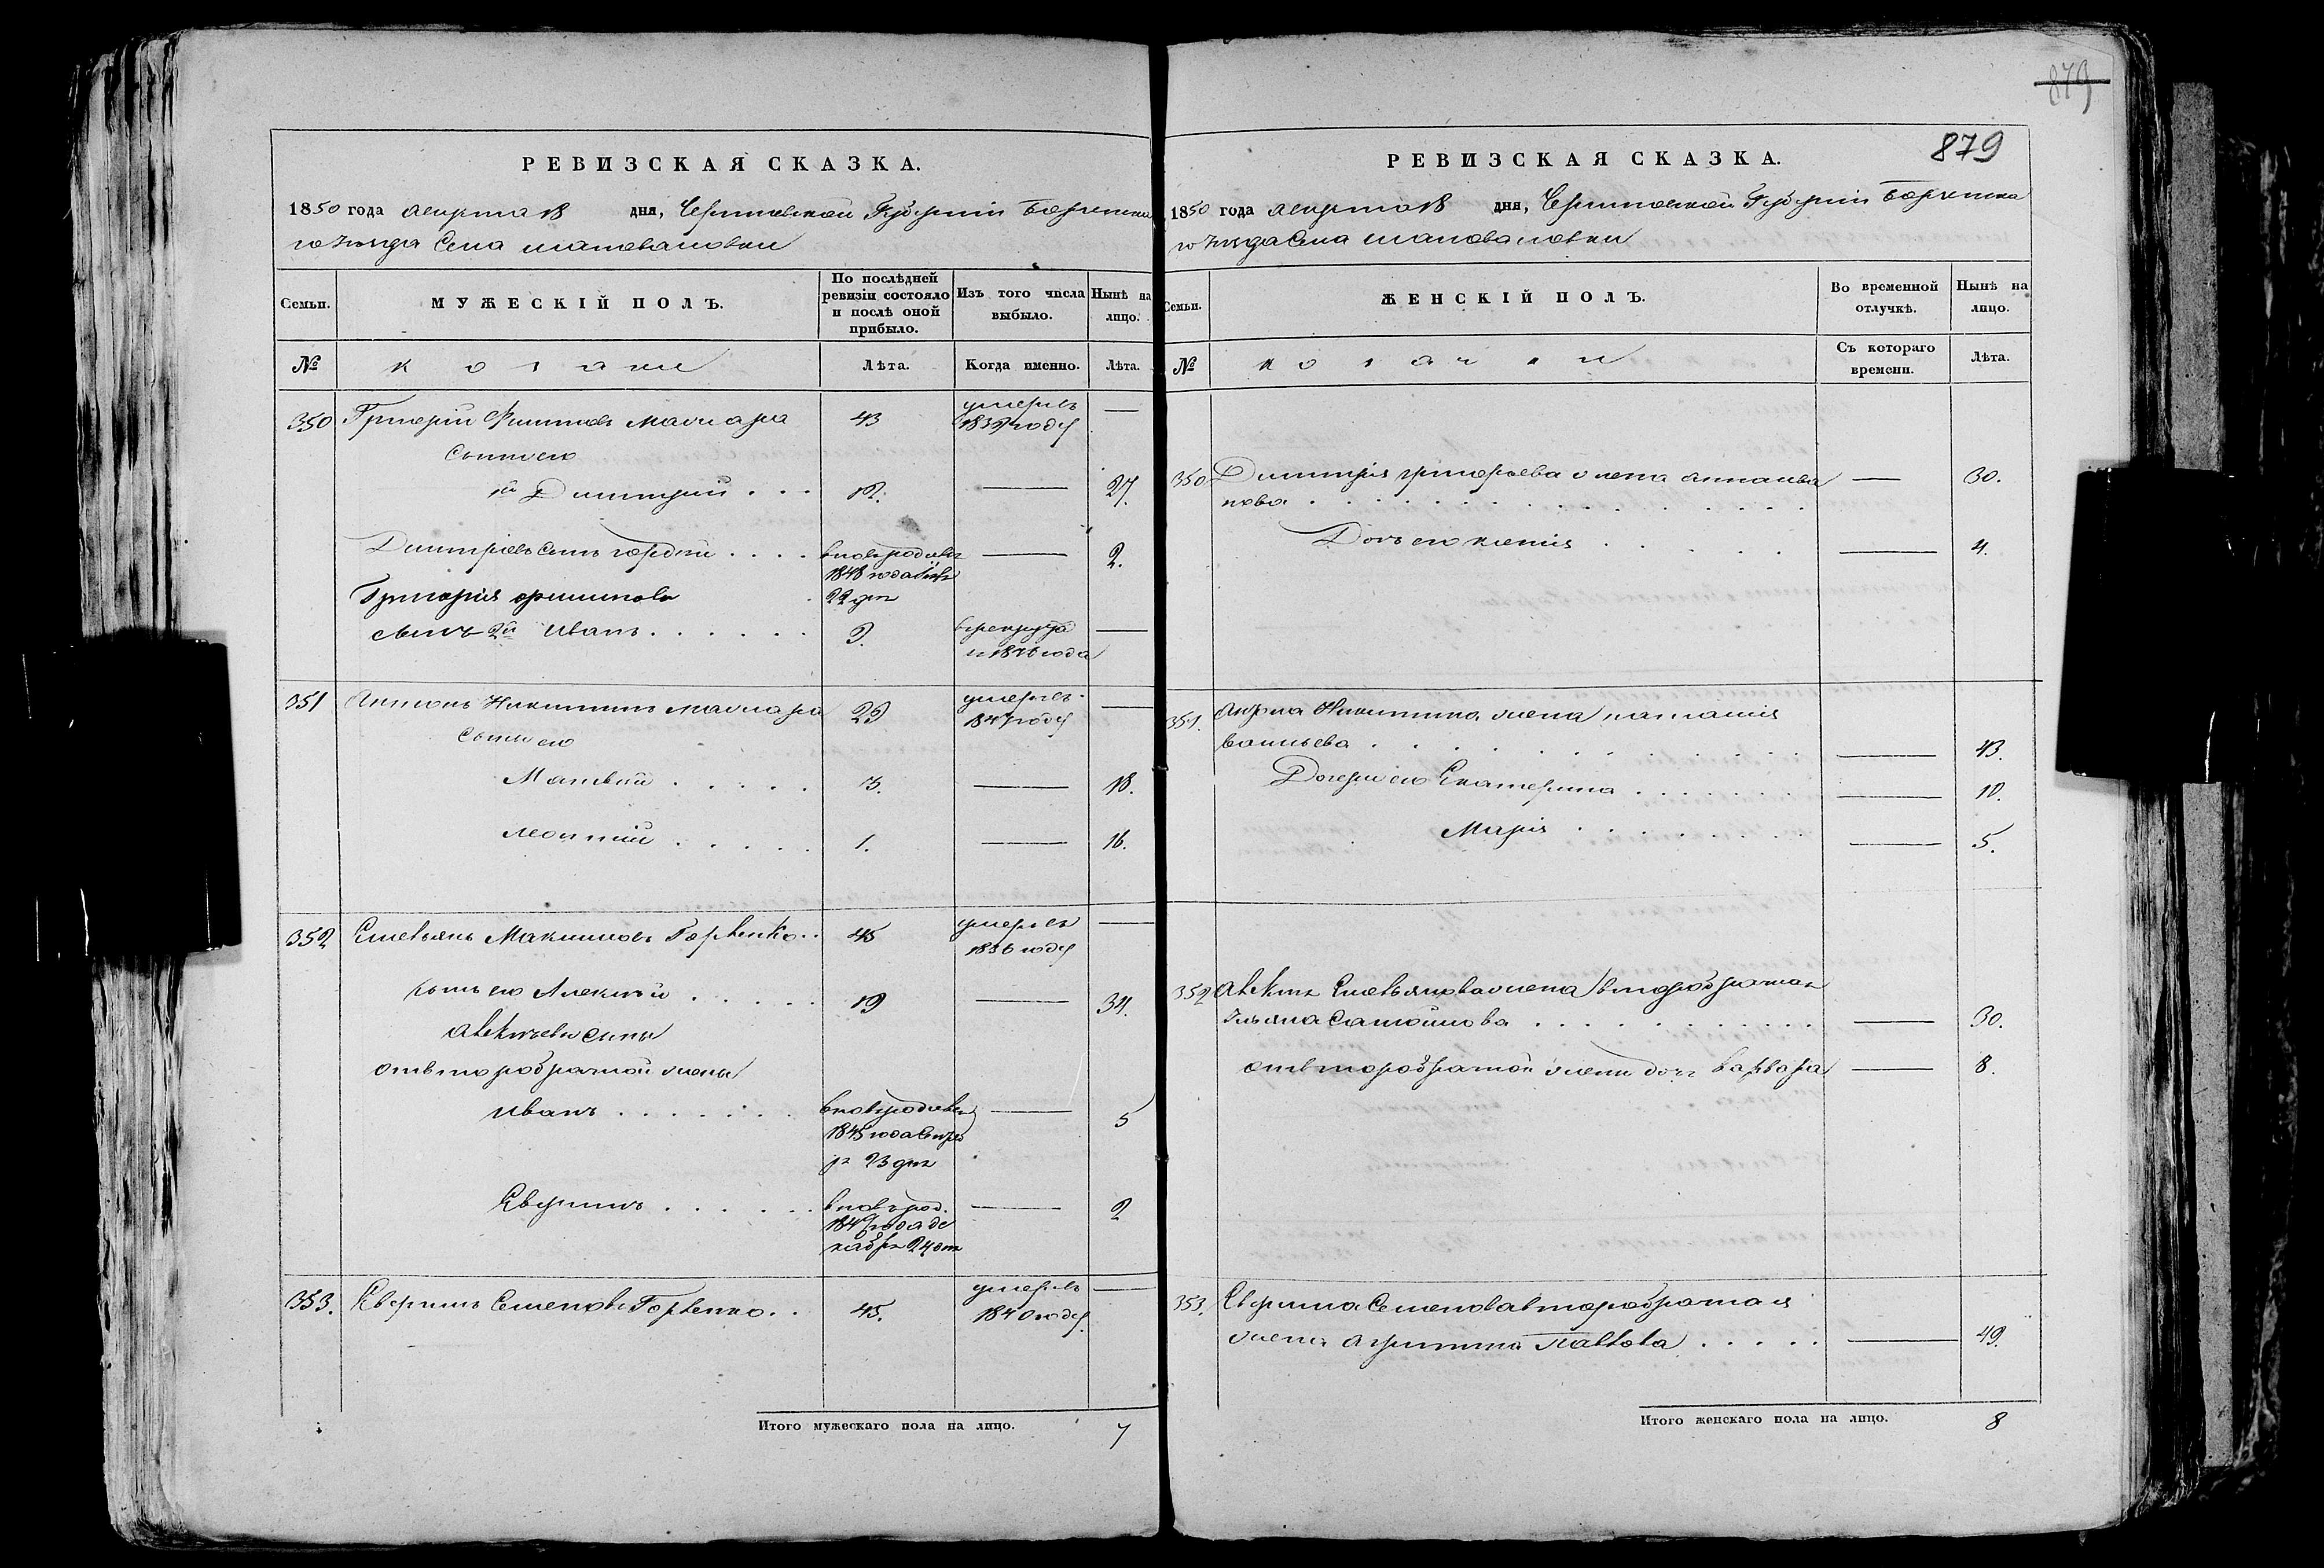 879
РЕВИЗСКАЯ СКАЗКА.
1850 года августа 18 дня, Черниговской Губернии Борзенска
го Уезда Села Шаповаловки
Семьи.
МУЖЕСКІЙ ПОЛЪ.
По послѣдней ревизіи состояло и послѣ оной прибыло.
Изъ того числа выбыло.
Нынѣ на лицо.
№
козаки
Лѣта.
Когда именно.
Лѣта.
350 Григорій Филиповъ 43 умеръ —
1839 году
Сыни его
1й Димитрій . . . 12. — 27.
Димитріевъ Сынъ Гордѣй . . . . вновьродивш — 2.
1848 года
22 дня
Григорія Филипова
Сынъ 2й Иванъ . . . . . . 9. —
1846 года
351 Антонъ Никитинъ 29 умеръ —
1847 году
Сыни его
Матвѣй . . . . . 3. — 18.
Леонтій . . . . . 1. — 16.
352 Емельянъ Максимовъ Горленко . . 45 умеръ —
1836 году
Сынъ его Алексѣй . . . . . 19 — 34.
Алексѣеви Сыны
отвторобрачной жены
Иванъ . . . . . . . вновьродивш — 5
1845 года
23 дня
Кверинъ . . . . . . вновь род. — 2
1847 года де
кабря 24 дня
353. Кверинъ Семеновъ Горленко . . 45. умеръ —
1840 году.
Итого мужескаго пола на лицо. 7
879
РЕВИЗСКАЯ СКАЗКА.
1850 года августа 18 дня, Черниговской Губернии Борзенска
го Уезда Села Шаповаловки
Семьи.
ЖЕНСКІЙ ПОЛЪ.
Во временной отлучкѣ.
Нынѣ на лицо.
№
козачки
Съ котораго времени.
Лѣта.
350 Димитрія Григорьева жена — 30.
Дочь его Ксенія . . . . . — 4.
351. Никитина жена Наталія
Васильева . . . . . . . . . . — 43.
Дочери его Екатерина . . . . . . — 10.
Марія . . . . . . . — 5.
352 Алексѣя Емельянова жена второбрачная
Ульяна Самойлова . . . . . . . . . — 30.
отвторобрачной жени дочь Варвара — 8.
353. Кверина Семенова второбрачная
жена Агрипина Павлова . . . . . — 49.
Итого женскаго пола на лицо. 8